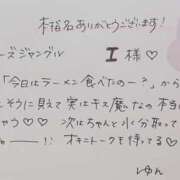 本指名ありがとうございます!
ーズジャングル
I様♡
「今日はラーメン食べたのー?」から
そうに見えて実はキス魔なの本
ゃう♡♡次はちゃんと水分取って
ー!! オキニトークを待ってる♡
ゆん